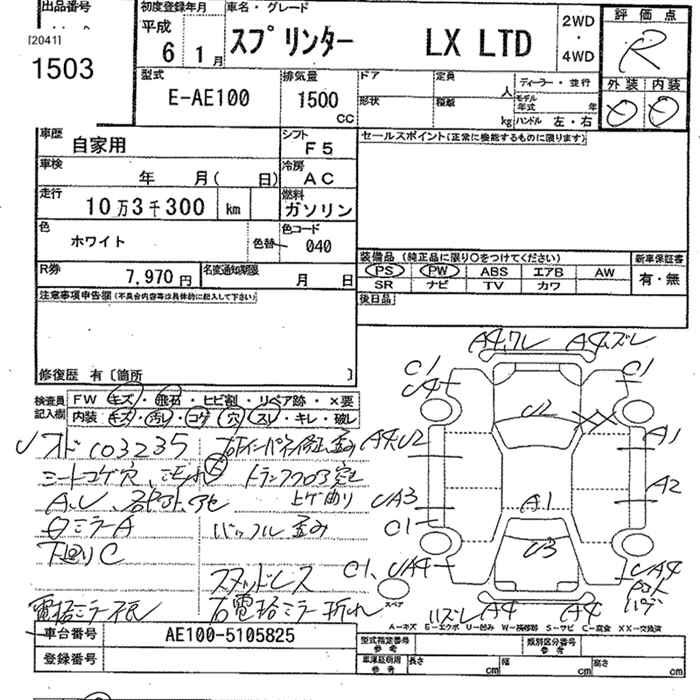 出品番号
[2041]
1503
初度登録年月
平成
6 1月
車名・グレード
スプリンター LX LTD
2WD
・
4WD
評価点
R
外装 内装
型式
E-AE100
排気量
1500
cc
ドア
定員
人
形状
積載
kg
ディーラー・並行
モデル年式 年
ハンドル 左・右
車歴
自家用
シフト
F5
車検
年 月( 日)
冷房
AC
走行
10万3千300 km
燃料
ガソリン
色
ホワイト
色替
色コード
040
R券
7,970円
名変通知期限
月 日
セールスポイント(正常に機能するものに限ります)
装備品(純正品に限り○をつけてください)
PS PW ABS エアB AW
SR ナビ TV カワ
新車保証書
有・無
後日品
注意事項申告欄(不具合内容等は具体的に記入して下さい)
修復歴 有〔箇所 〕
検査員記入欄
FW キズ・飛石・ヒビ割・リペア跡・×要
内装 キズ・汚レ・コゲ・穴・スレ・キレ・破レ
103235
シートコゲ穴、
トランクフロア
ミラーA
下回りC
スタッドレス
電格ミラー
右電格ミラー折れ
A4,ワレ
A4,ズレ
C1
UA4
C1
A4U2
U2
A1
UA3
A1
A2
C1
U3
C1、UA4
UA4
ハズレ
A4
A4
スペア
A－キズ E－エクボ U－凹み W－補修跡 S－サビ C－腐食 XX－交換済
車台番号
AE100-5105825
登録番号
型式指定番号
参考
類別区分番号
参考
車庫証明用
参考
長さ cm
幅 cm
高さ cm